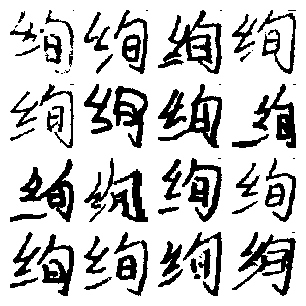 绚绚绚绚
绚绚绚绚
绚绚绚绚
绚绚绚绚